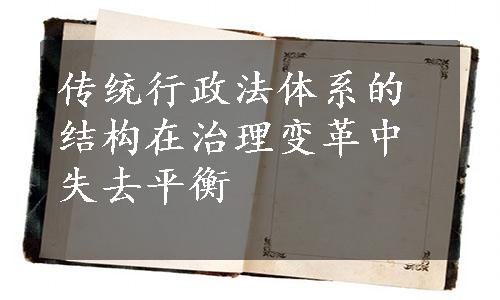 传统行政法体系的
结构在治理变革中
失去平衡